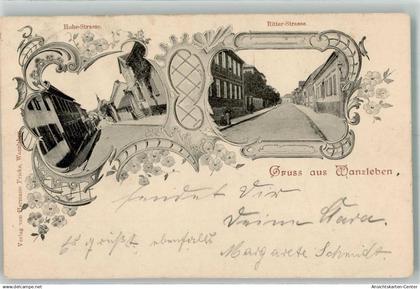 Hohe-Strasse.
Ritter-Strasse.
Verlag von Hermann Fricke, Wanzleben.
Gruss aus Wanzleben,
sendet Dir
Deine Clara.
Es grüßt ebenfalls
Margarete Schmidt
Ansichtskarten-Center